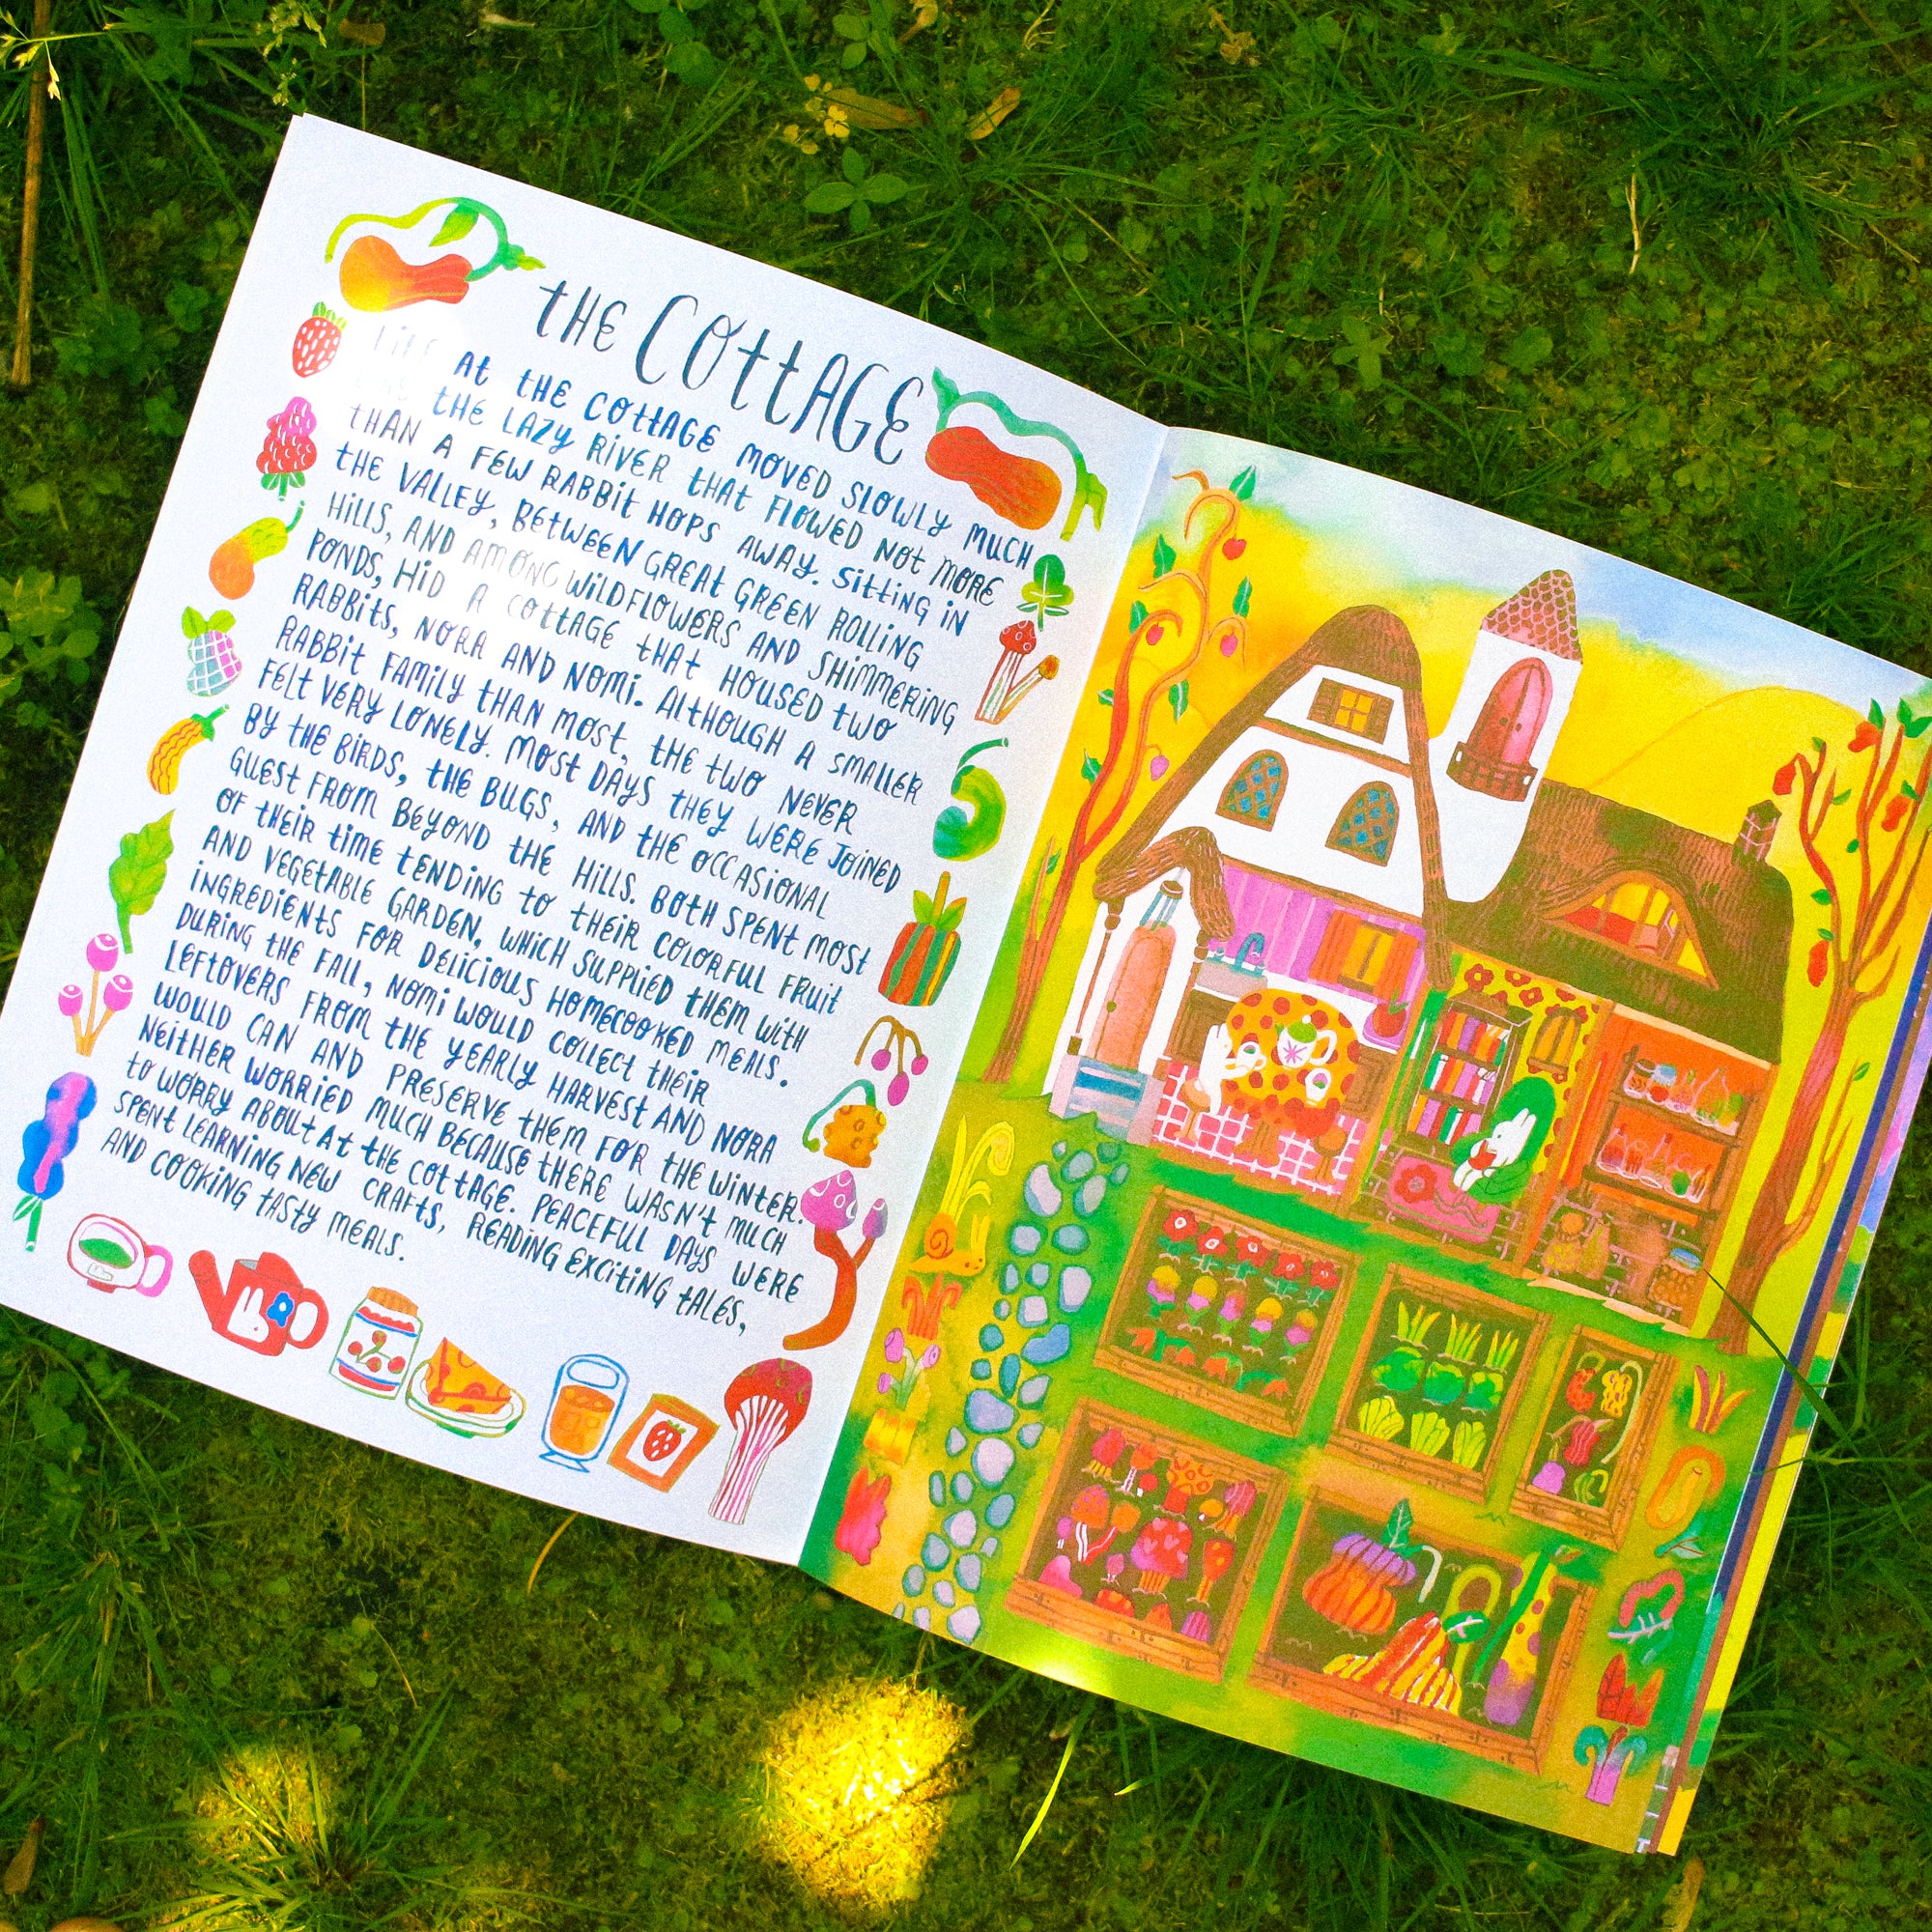 THE COTTAGE
LIFE AT THE COTTAGE MOVED SLOWLY MUCH
THE LAZY RIVER THAT FLOWED NOT MORE
THAN A FEW RABBIT HOPS AWAY. SITTING IN
THE VALLEY, BETWEEN GREAT GREEN ROLLING
HILLS, AND AMONG WILDFLOWERS AND SHIMMERING
PONDS, HID A COTTAGE THAT HOUSED TWO
RABBITS, NORA AND NOMI. ALTHOUGH A SMALLER
RABBIT FAMILY THAN MOST, THE TWO NEVER
FELT VERY LONELY. MOST DAYS THEY WERE JOINED
BY THE BIRDS, THE BUGS, AND THE OCCASIONAL
GUEST FROM BEYOND THE HILLS. BOTH SPENT MOST
OF THEIR TIME TENDING TO THEIR COLORFUL FRUIT
AND VEGETABLE GARDEN, WHICH SUPPLIED THEM WITH
INGREDIENTS FOR DELICIOUS HOMECOOKED MEALS.
DURING THE FALL, NOMI WOULD COLLECT THEIR
LEFTOVERS FROM THE YEARLY HARVEST AND NORA
WOULD CAN AND PRESERVE THEM FOR THE WINTER.
NEITHER WORRIED MUCH BECAUSE THERE WASN'T MUCH
TO WORRY ABOUT AT THE COTTAGE. PEACEFUL DAYS WERE
SPENT LEARNING NEW CRAFTS, READING EXCITING TALES,
AND COOKING TASTY MEALS.